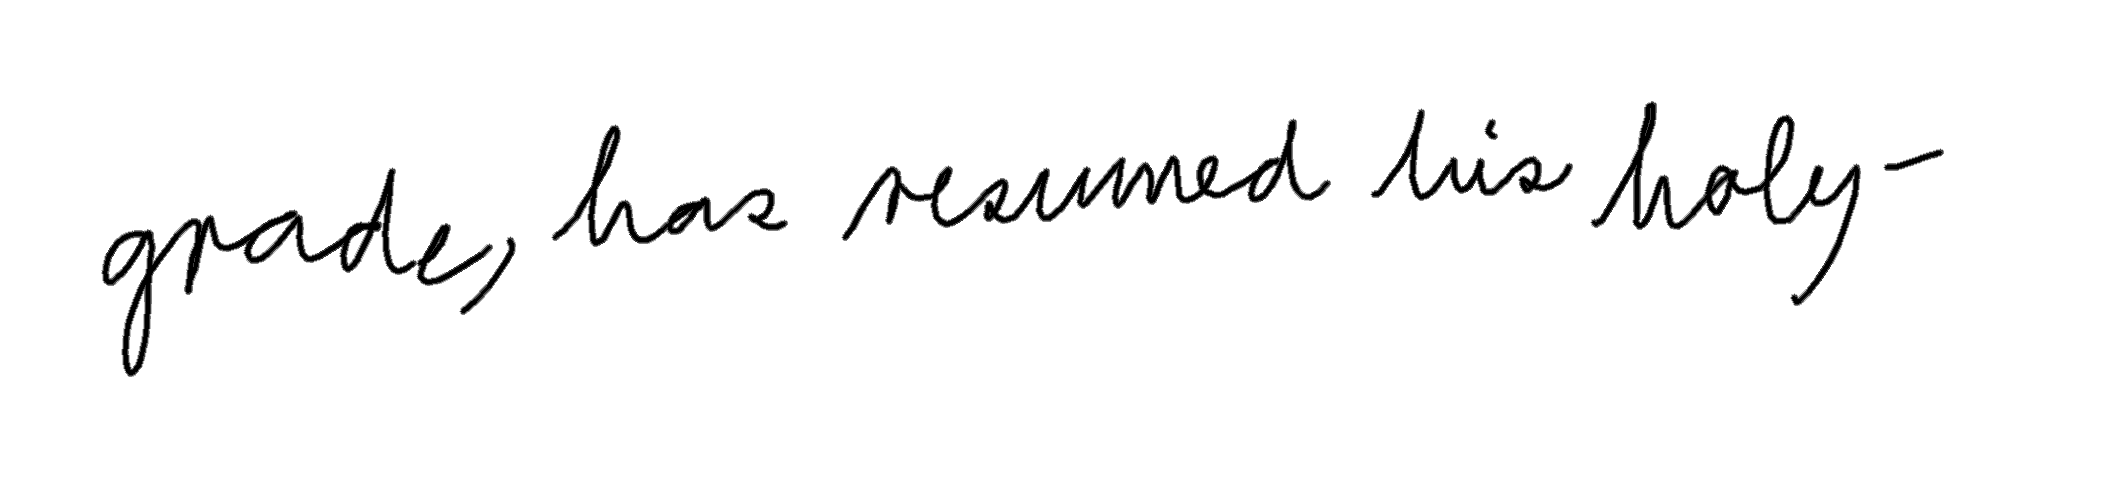 grade, has resumed his holy-